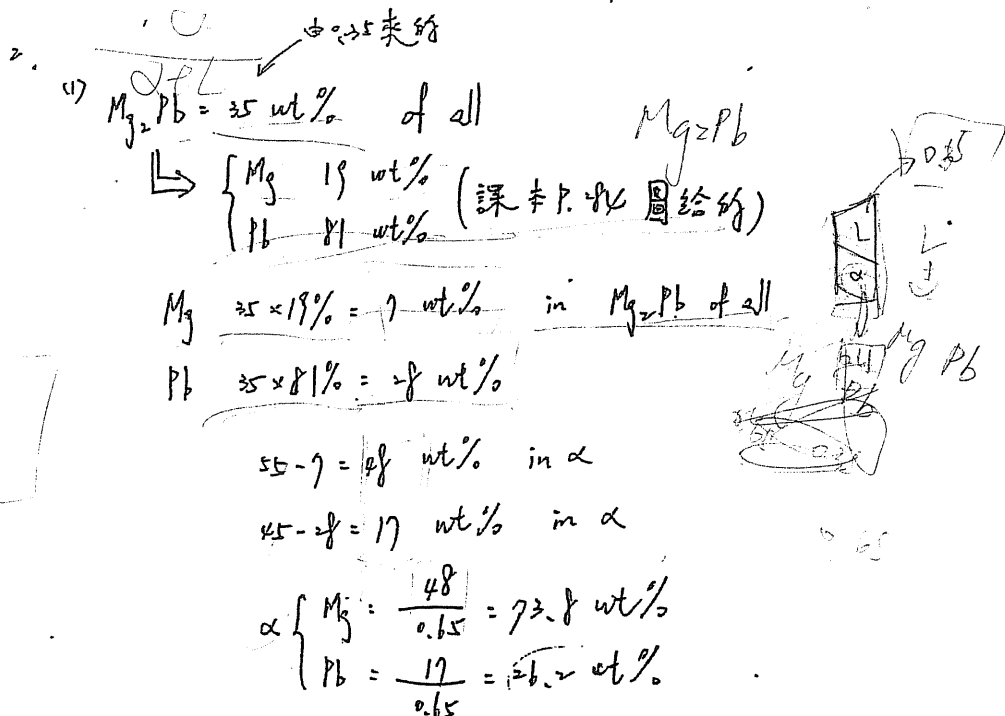 2.
由0.35來的
α+L
(1) Mg₂Pb = 35 wt% of all
Mg₂Pb
{ Mg 19 wt%
Pb 81 wt% (課本P.284 圖給的)
0.35
L
α
L
Mg 35×19% = 7 wt% in Mg₂Pb of all
Pb 35×81% = 28 wt%
Mg Pb
55-7 = 48 wt% in α
45-28 = 17 wt% in α
α { Mg : 48/0.65 = 73.8 wt%
Pb = 17/0.65 = 26.2 wt%